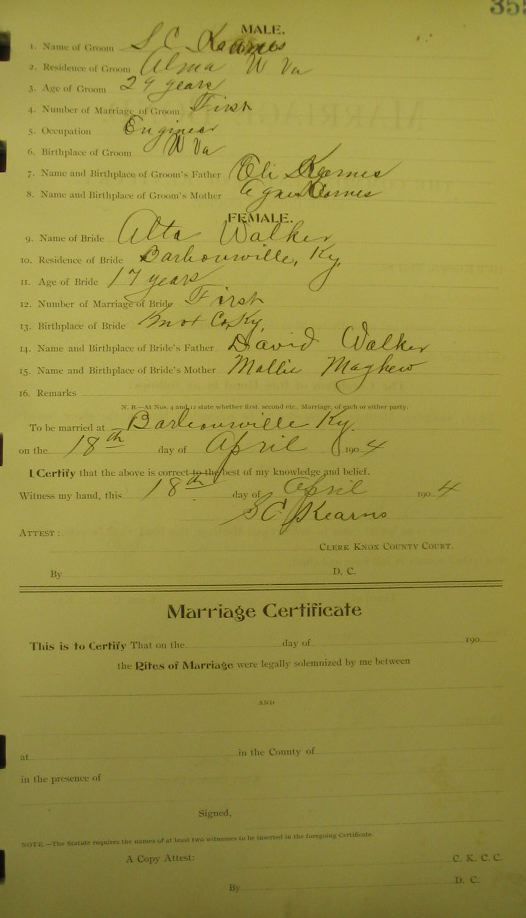 355
MALE.
1. Name of Groom S C Kearns
2. Residence of Groom Alma W Va
3. Age of Groom 29 years
4. Number of Marriage of Groom First
5. Occupation Engineer
6. Birthplace of Groom W Va
7. Name and Birthplace of Groom's Father Eli Kearnes
8. Name and Birthplace of Groom's Mother Kearnes
FEMALE.
9. Name of Bride Alta Walker
10. Residence of Bride Barbourville, Ky.
11. Age of Bride 17 years
12. Number of Marriage of Bride First
13. Birthplace of Bride Knox Co Ky.
14. Name and Birthplace of Bride's Father David Walker
15. Name and Birthplace of Bride's Mother Mollie Mayhew
16. Remarks
N. B.—At Nos. 4 and 12 state whether first, second etc., Marriage, of each or either party.
To be married at Barbourville Ky.
on the 18th day of April 1904
I Certify that the above is correct to the best of my knowledge and belief.
Witness my hand, this 18th day of April 1904
S C Kearns
ATTEST:
CLERK KNOX COUNTY COURT.
By D. C.
Marriage Certificate
This is to Certify That on the day of 190
the Rites of Marriage were legally solemnized by me between
AND
at in the County of
in the presence of
Signed,
NOTE.—The Statute requires the names of at least two witnesses to be inserted in the foregoing Certificate.
A Copy Attest: C. K. C. C.
By D. C.